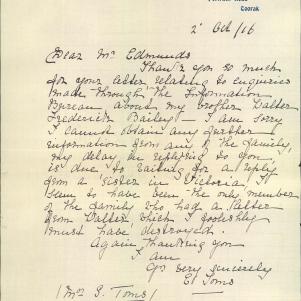 Toorak
2 Oct/16
Dear Mr Edmunds
Thank you so much
for your letter relating to enquiries
made through the Information
Bureau about my brother Walter
Frederick Bailey – I am sorry
I cannot obtain any further
information from any of the family,
my delay in replying to you,
is due to waiting for a reply
from a sister in Victoria. I
seem to have been the only member
of the family who had a letter
from Walter which I foolishly
must have destroyed.
Again thanking you
I am
Yrs very sincerely
E Toms
(Mrs S. Toms)